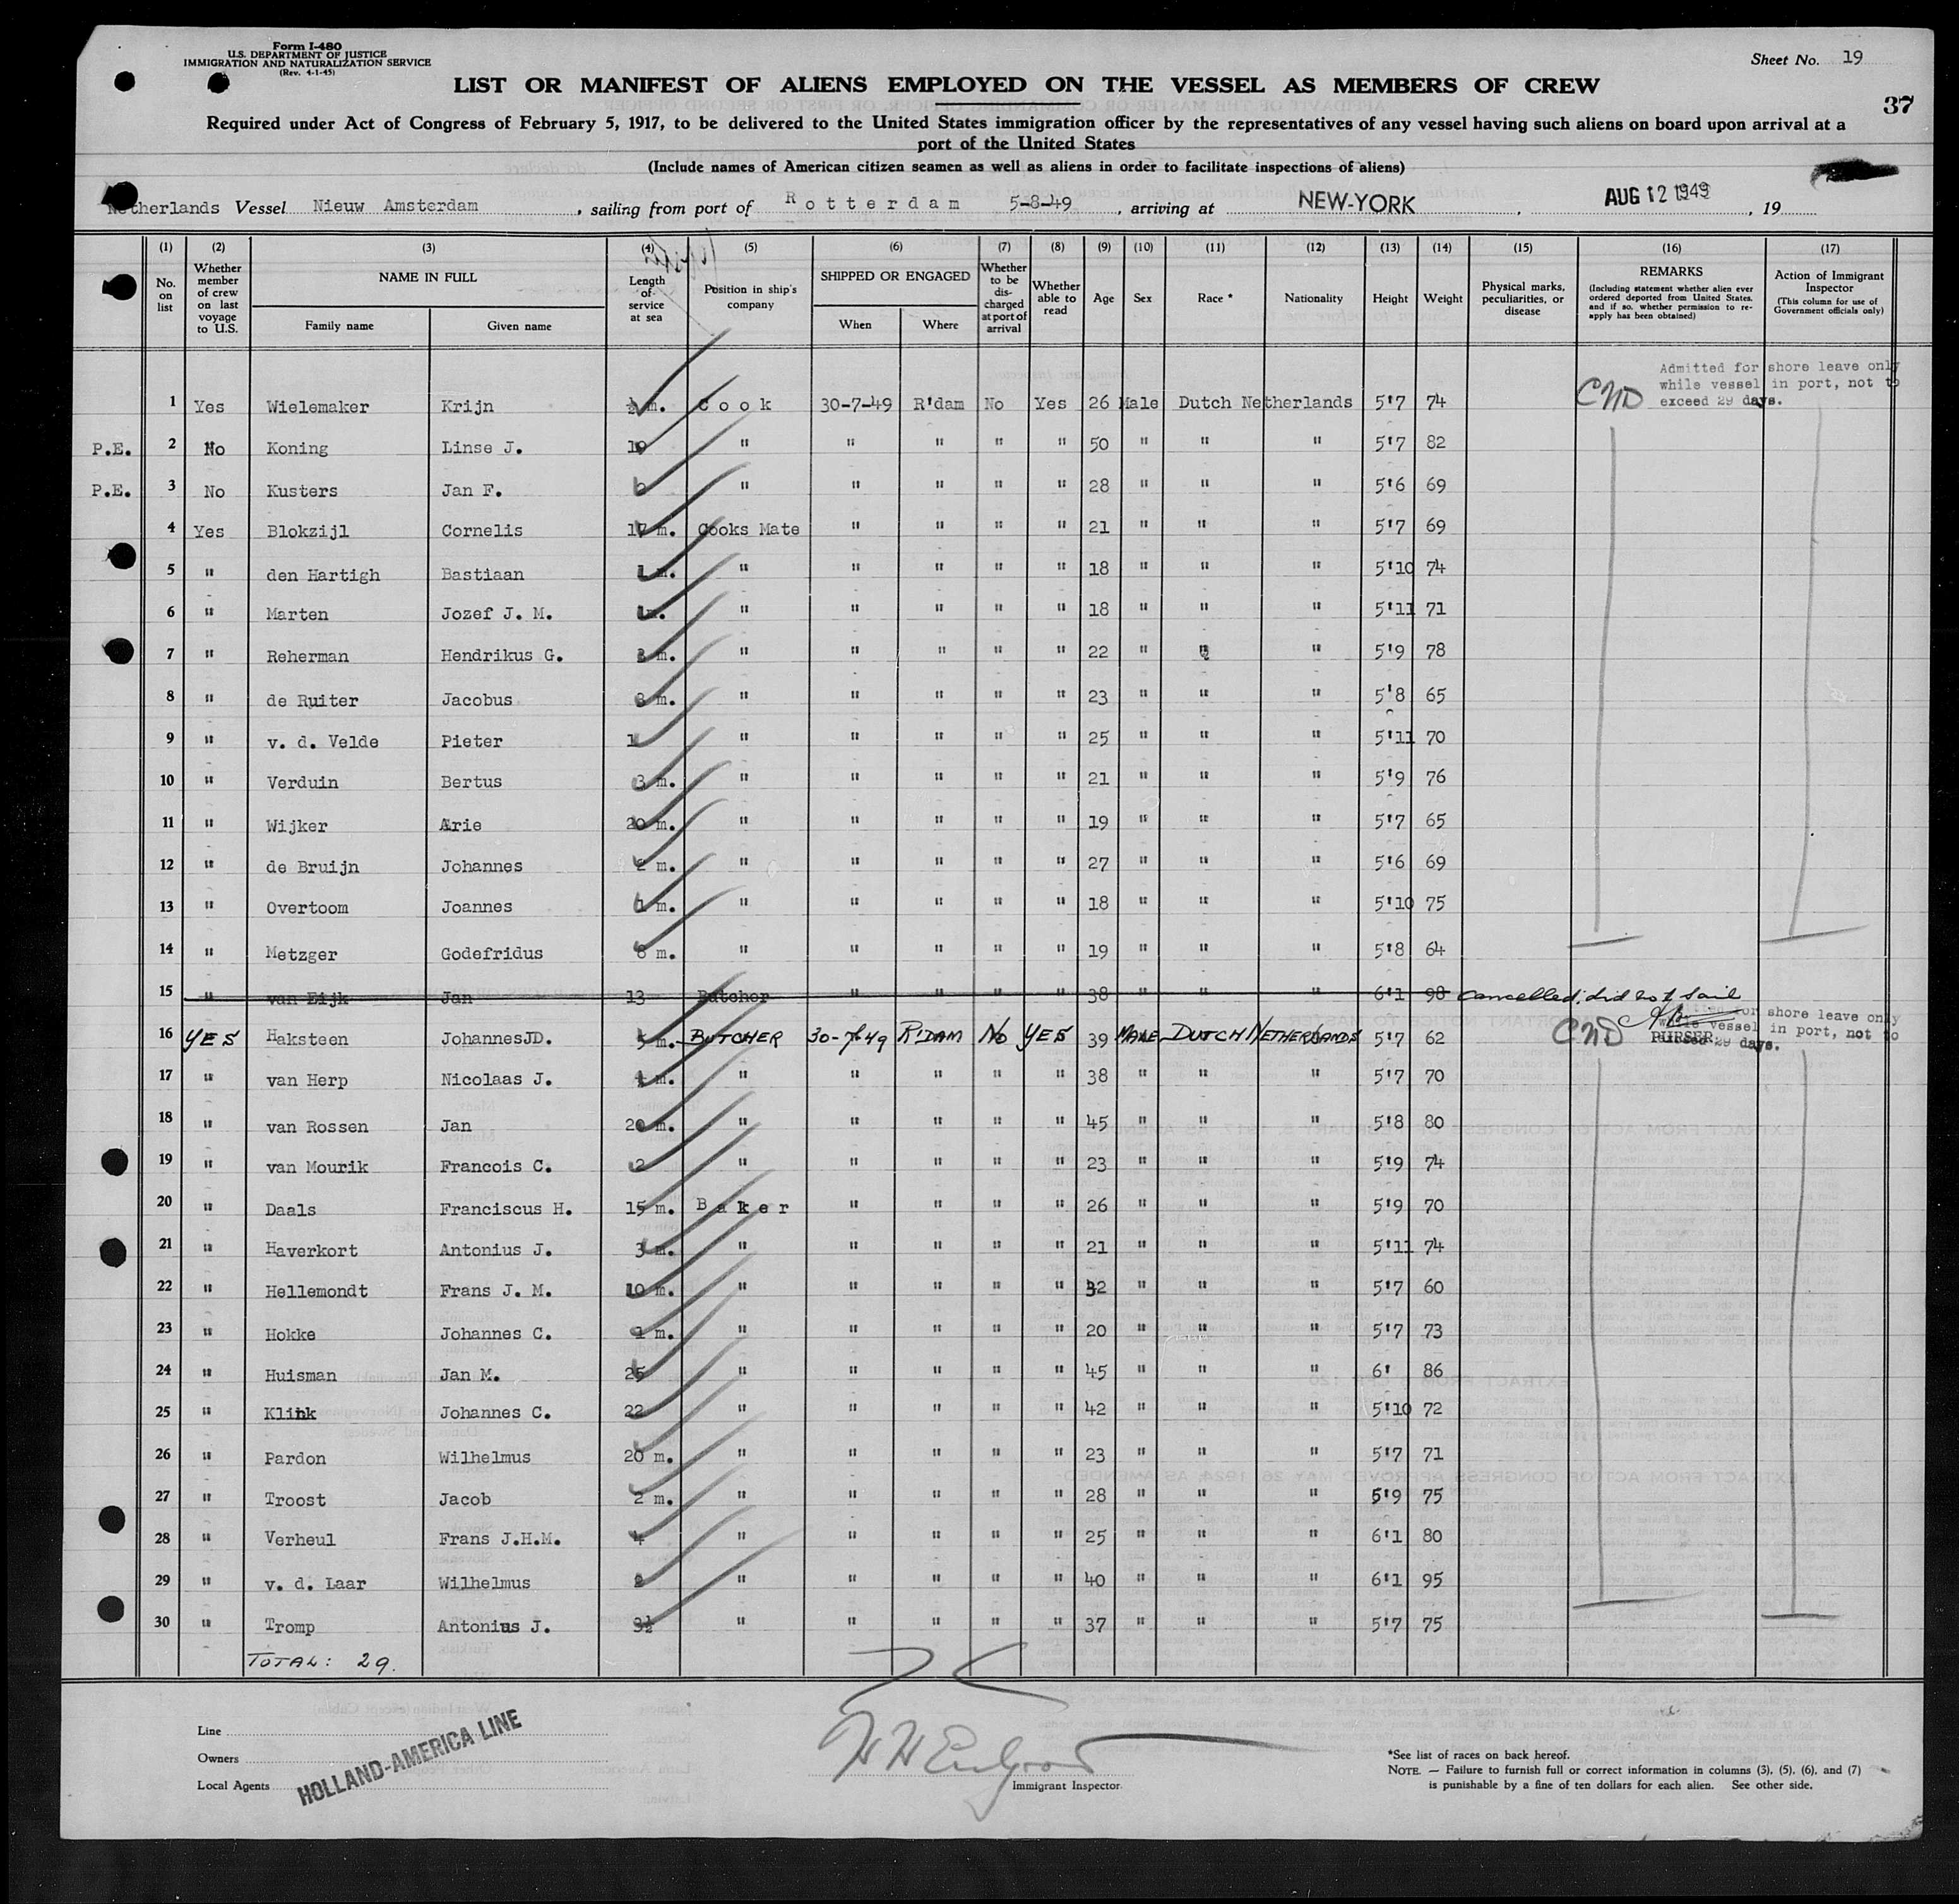 Form I-480
U.S. DEPARTMENT OF JUSTICE
IMMIGRATION AND NATURALIZATION SERVICE
(Rev. 4-1-45)
Sheet No. 19
LIST OR MANIFEST OF ALIENS EMPLOYED ON THE VESSEL AS MEMBERS OF CREW
37
Required under Act of Congress of February 5, 1917, to be delivered to the United States immigration officer by the representatives of any vessel having such aliens on board upon arrival at a
port of the United States
(Include names of American citizen seamen as well as aliens in order to facilitate inspections of aliens)
Netherlands Vessel Nieuw Amsterdam, sailing from port of Rotterdam 5-8-49, arriving at NEW-YORK, AUG 12 1949, 19
(1) (2) (3) (4) (5) (6) (7) (8) (9) (10) (11) (12) (13) (14) (15) (16) (17)
No. on list
Whether member of crew on last voyage to U.S.
NAME IN FULL
Family name
Given name
Length of service at sea
Position in ship's company
SHIPPED OR ENGAGED
When
Where
Whether to be discharged at port of arrival
Whether able to read
Age
Sex
Race *
Nationality
Height
Weight
Physical marks, peculiarities, or disease
REMARKS
(Including statement whether alien ever ordered deported from United States, and if so, whether permission to re-apply has been obtained)
Action of Immigrant Inspector
(This column for use of Government officials only)
Admitted for shore leave only
while vessel in port, not to
exceed 29 days.
1 Yes Wielemaker Krijn m. Cook 30-7-49 R'dam No Yes 26 Male Dutch Netherlands 5'7 74 CND
P.E. 2 No Koning Linse J. 19 " " " " " 50 " " " 5'7 82
P.E. 3 No Kusters Jan F. " " " " " 28 " " " 5'6 69
4 Yes Blokzijl Cornelis 17 m. Cooks Mate " " " " 21 " " " 5'7 69
5 " den Hartigh Bastiaan 1 m. " " " " " 18 " " " 5'10 74
6 " Marten Jozef J. M. 1m. " " " " " 18 " " " 5'11 71
7 " Reherman Hendrikus G. m. " " " " " 22 " " " 5'9 78
8 " de Ruiter Jacobus m. " " " " " 23 " " " 5'8 65
9 " v. d. Velde Pieter 1 " " " " " 25 " " " 5'11 70
10 " Verduin Bertus 3 m. " " " " " 21 " " " 5'9 76
11 " Wijker Arie 20 m. " " " " " 19 " " " 5'7 65
12 " de Bruijn Johannes 2 m. " " " " " 27 " " " 5'6 69
13 " Overtoom Joannes 1 m. " " " " " 18 " " " 5'10 75
14 " Metzger Godefridus 8 m. " " " " " 19 " " " 5'8 64
15 " van Eijk Jan 13 Butcher " " " " 38 " " " 6'1 98 Cancelled, did not sail
16 YES Haksteen Johannes JD. 5 m. BUTCHER 30-7-49 R'DAM NO YES 39 MALE DUTCH NETHERLANDS 5'7 62 CND
for shore leave only
while vessel in port, not to
exceed 29 days.
PURSER.
17 " van Herp Nicolaas J. m. " " " " " 38 " " " 5'7 70
18 " van Rossen Jan 20 m. " " " " " 45 " " " 5'8 80
19 " van Mourik Francois C. 2 " " " " " 23 " " " 5'9 74
20 " Daals Franciscus H. 15 m. Baker " " " " 26 " " " 5'9 70
21 " Haverkort Antonius J. 3 m. " " " " " 21 " " " 5'11 74
22 " Hellemondt Frans J. M. 10 m. " " " " " 32 " " " 5'7 60
23 " Hokke Johannes C. 1 m. " " " " " 20 " " " 5'7 73
24 " Huisman Jan M. 25 " " " " " 45 " " " 6' 86
25 " Klink Johannes C. 22 " " " " " 42 " " " 5'10 72
26 " Pardon Wilhelmus 20 m. " " " " " 23 " " " 5'7 71
27 " Troost Jacob 2 m. " " " " " 28 " " " 5'9 75
28 " Verheul Frans J.H.M. 4 " " " " " 25 " " " 6'1 80
29 " v. d. Laar Wilhelmus 2 " " " " " 40 " " " 6'1 95
30 " Tromp Antonius J. 3½ " " " " " 37 " " " 5'7 75
TOTAL: 29.
Line
Owners
Local Agents
HOLLAND-AMERICA LINE
Immigrant Inspector.
*See list of races on back hereof.
NOTE. — Failure to furnish full or correct information in columns (3), (5), (6), and (7)
is punishable by a fine of ten dollars for each alien. See other side.